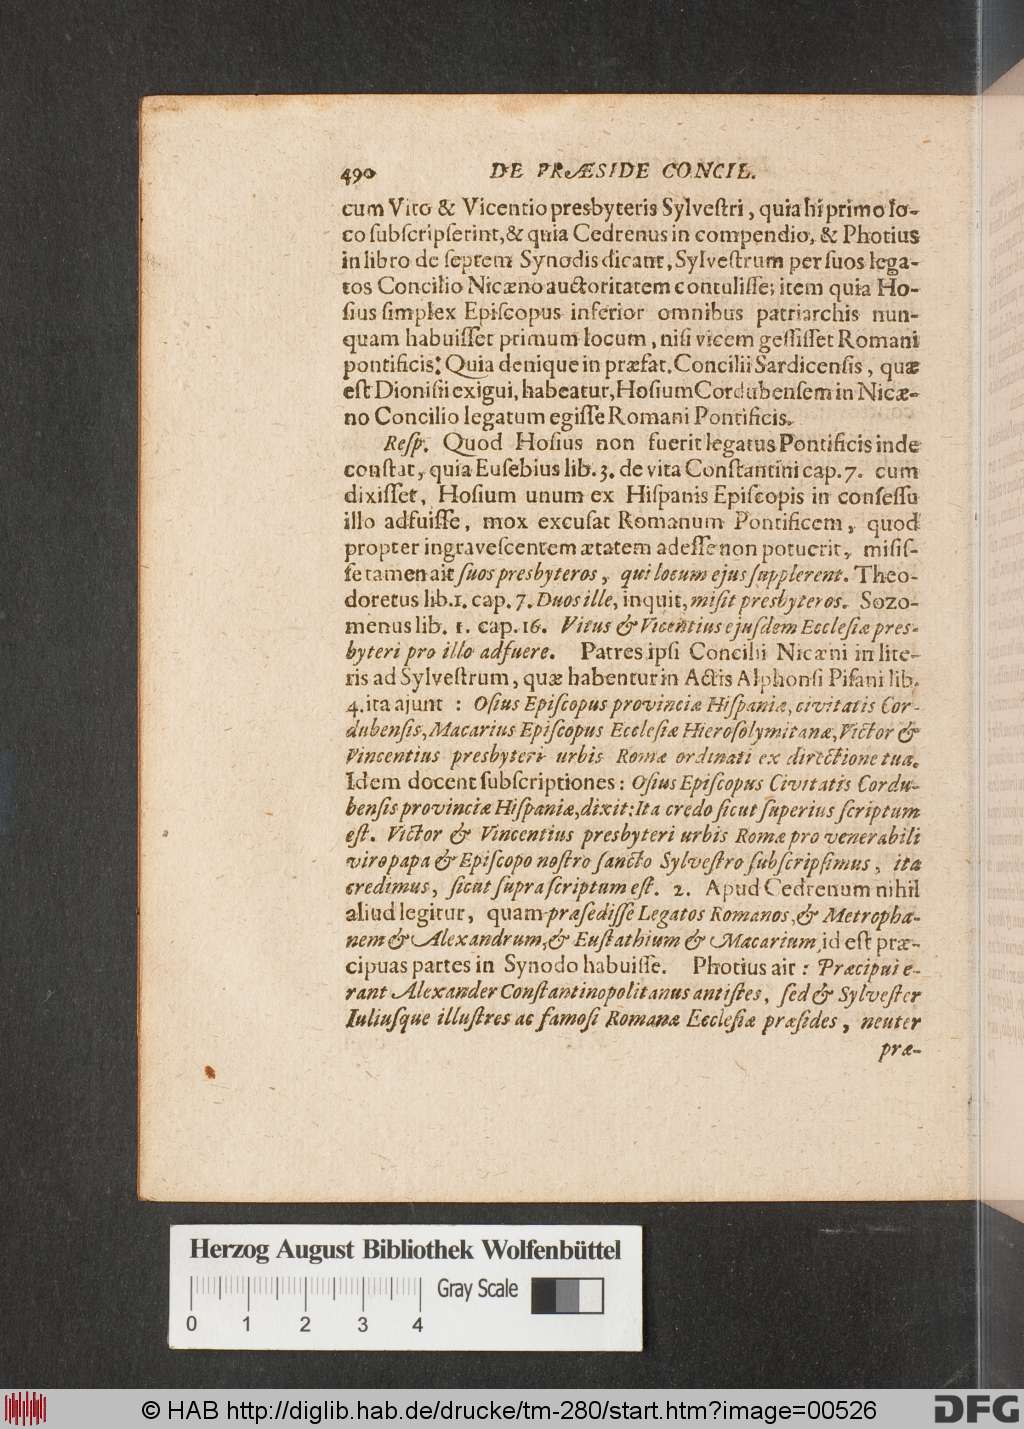 490 DE PRÆSIDE CONCIL.
cum Vito & Vicentio presbyteris Sylveſtri, quia hi primo lo-
co ſubſcripſerint, & quia Cedrenus in compendio, & Photius
in libro de ſeptem Synodis dicant, Sylveſtrum per ſuos lega-
tos Concilio Nicæno auctoritatem contuliſſe; item quia Ho-
ſius ſimplex Epiſcopus inferior omnibus patriarchis nun-
quam habuiſſet primum locum, niſi vicem geſſiſſet Romani
pontificis: Quia denique in præfat. Concilii Sardicenſis, quæ
eſt Dioniſii exigui, habeatur, Hoſium Cordubenſem in Nicæ-
no Concilio legatum egiſſe Romani Pontificis.
Reſp. Quod Hoſius non fuerit legatus Pontificis inde
conſtat, quia Euſebius lib. 3. de vita Conſtantini cap. 7. cum
dixiſſet, Hoſium unum ex Hiſpanis Epiſcopis in conſeſſu
illo adfuiſſe, mox excuſat Romanum Pontificem, quod
propter ingraveſcentem ætatem adeſſe non potuerit, miſiſ-
ſe tamen ait ſuos presbyteros, qui locum ejus ſupplerent. Theo-
doretus lib. 1. cap. 7. Duos ille, inquit, miſit presbyteros. Sozo-
menus lib. 1. cap. 16. Vitus & Vicentius ejuſdem Eccleſiæ pres-
byteri pro illo adfuere. Patres ipſi Concilii Nicæni in lite-
ris ad Sylveſtrum, quæ habentur in Actis Alphonſi Piſani lib.
4. ita ajunt : Oſius Epiſcopus provinciæ Hiſpaniæ, civitatis Cor-
dubenſis, Macarius Epiſcopus Eccleſiæ Hieroſolymitanæ, Victor &
Vincentius presbyteri urbis Romæ ordinati ex directione tua.
Idem docent ſubſcriptiones: Oſius Epiſcopus Civitatis Cordu-
benſis provinciæ Hiſpaniæ, dixit: Ita credo ſicut ſuperius ſcriptum
eſt. Victor & Vincentius presbyteri urbis Romæ pro venerabili
viro papa & Epiſcopo noſtro ſancto Sylveſtro ſubſcripſimus, ita
credimus, ſicut ſupra ſcriptum eſt. 2. Apud Cedrenum nihil
aliud legitur, quam præſediſſe Legatos Romanos, & Metropha-
nem & Alexandrum, & Euſtathium & Macarium, id eſt præ-
cipuas partes in Synodo habuiſſe. Photius ait : Præcipui e-
rant Alexander Conſtantinopolitanus antiſtes, ſed & Sylveſter
Iuliuſque illuſtres ac famoſi Romanæ Eccleſiæ præſides, neuter
præ-
Herzog August Bibliothek Wolfenbüttel
Gray Scale
0 1 2 3 4
© HAB http://diglib.hab.de/drucke/tm-280/start.htm?image=00526
DFG